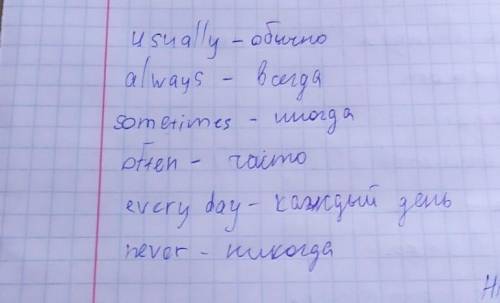 usually - обычно
always - всегда
sometimes - иногда
often - часто
every day - каждый день
never - никогда